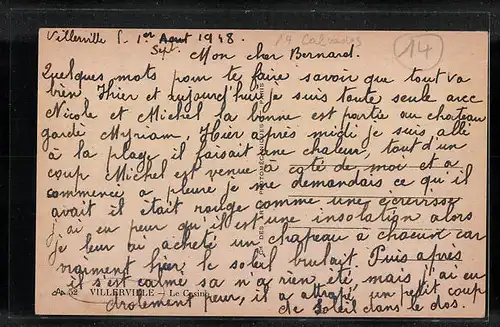 Villerville l. 1er Aout 1948.
Sep. 14 Calvados
14
Mon cher Bernard.
Quelques mots pour te faire savoir que tout va
bien Hier et aujourd'hui je suis toute seule avec
Nicole et Michel la bonne est partie au chateau
gardé Myriam. Hier après midi je suis allé
à la plage il faisait une chaleur, tout d'un
coup Michel est venue à coté de moi et a
commencée a pleure je me demandais ce qu'il
avait il était rouge comme une
j'ai eu peur qu'il est une insolation alors
je leur ai acheté un chapeau à chacun car
vraiment hier le soleil brulait Puis après
il s'est calmé sa n'a rien été mais j'ai eu
drolement peur, il a attrapé un petit coup
de soleil dans le dos.
52 VILLERVILLE — Le Casino